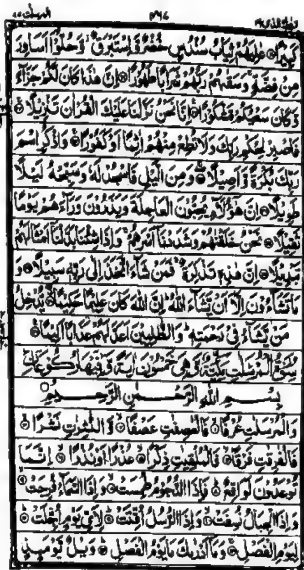 كَبِيرًا۝ عٰلِيَهُمْ ثِيَابُ سُنْدُسٍ خُضْرٌ وَّاِسْتَبْرَقٌ وَّحُلُّوْٓا اَسَاوِرَ
مِنْ فِضَّةٍ وَسَقٰىهُمْ رَبُّهُمْ شَرَابًا طَهُوْرًا۝ اِنَّ هٰذَا كَانَ لَكُمْ جَزَآءً
وَّكَانَ سَعْيُكُمْ مَّشْكُوْرًا۝ اِنَّا نَحْنُ نَزَّلْنَا عَلَيْكَ الْقُرْاٰنَ تَنْزِيْلًا۝
فَاصْبِرْ لِحُكْمِ رَبِّكَ وَلَا تُطِعْ مِنْهُمْ اٰثِمًا اَوْ كَفُوْرًا۝ وَاذْكُرِ اسْمَ
رَبِّكَ بُكْرَةً وَّاَصِيْلًا۝ وَمِنَ الَّيْلِ فَاسْجُدْ لَهٗ وَسَبِّحْهُ لَيْلًا
طَوِيْلًا۝ اِنَّ هٰٓؤُلَآءِ يُحِبُّوْنَ الْعَاجِلَةَ وَيَذَرُوْنَ وَرَآءَهُمْ يَوْمًا
ثَقِيْلًا۝ نَحْنُ خَلَقْنٰهُمْ وَشَدَدْنَآ اَسْرَهُمْ وَاِذَا شِئْنَا بَدَّلْنَآ اَمْثَالَهُمْ
تَبْدِيْلًا۝ اِنَّ هٰذِهٖ تَذْكِرَةٌ فَمَنْ شَآءَ اتَّخَذَ اِلٰى رَبِّهٖ سَبِيْلًا۝ وَ
مَا تَشَآءُوْنَ اِلَّآ اَنْ يَّشَآءَ اللّٰهُ اِنَّ اللّٰهَ كَانَ عَلِيْمًا حَكِيْمًا۝ يُّدْخِلُ
مَنْ يَّشَآءُ فِيْ رَحْمَتِهٖ وَالظّٰلِمِيْنَ اَعَدَّ لَهُمْ عَذَابًا اَلِيْمًا۝
سُوْرَةُ الْمُرْسَلٰتِ مَكِّيَّةٌ وَّهِيَ خَمْسُوْنَ اٰيَةً وَّفِيْهَا رُكُوْعَانِ
بِسْمِ اللّٰهِ الرَّحْمٰنِ الرَّحِيْمِ
وَالْمُرْسَلٰتِ عُرْفًا۝ فَالْعٰصِفٰتِ عَصْفًا۝ وَّالنّٰشِرٰتِ نَشْرًا۝
فَالْفٰرِقٰتِ فَرْقًا۝ فَالْمُلْقِيٰتِ ذِكْرًا۝ عُذْرًا اَوْ نُذْرًا۝ اِنَّمَا
تُوْعَدُوْنَ لَوَاقِعٌ۝ فَاِذَا النُّجُوْمُ طُمِسَتْ۝ وَاِذَا السَّمَآءُ فُرِجَتْ۝
وَاِذَا الْجِبَالُ نُسِفَتْ۝ وَاِذَا الرُّسُلُ اُقِّتَتْ۝ لِاَيِّ يَوْمٍ اُجِّلَتْ۝
لِيَوْمِ الْفَصْلِ۝ وَمَآ اَدْرٰىكَ مَا يَوْمُ الْفَصْلِ۝ وَيْلٌ يَّوْمَئِذٍ